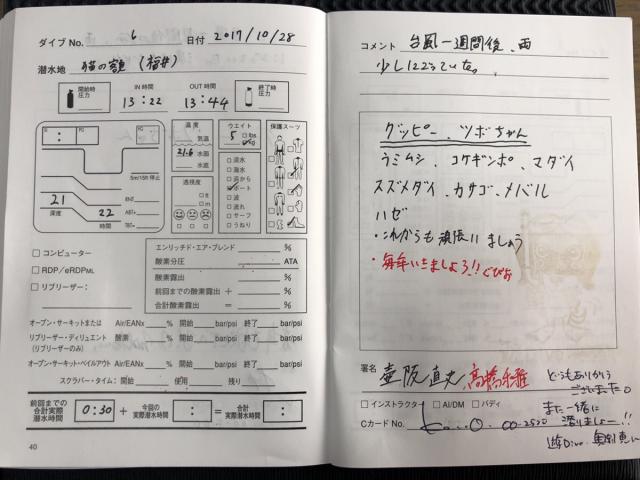 ダイブ No. 6 日付 2017/10/28
潜水地 猫の額 (福井)
開始時圧力
IN TIME 13:22
OUT TIME 13:44
終了時圧力
5m/15ft 停止
21
深度
22
時間
RNT
ABT
TBT
温度
気温
21.6 水面
水底
透視度
ft
m
ウエイト
5 lbs
kg
淡水
海水
岸から
ボート
波
流れ
サーフ
うねり
保護スーツ
コンピューター
RDP/eRDPML
リブリーザー:
エンリッチド・エア・ブレンド %
酸素分圧 ATA
酸素露出 %
前回までの酸素露出 + %
合計酸素露出 = %
オープン・サーキットまたは Air/EANx % 開始 bar/psi 終了 bar/psi
リブリーザー・ディリュエント 酸素 % 開始 bar/psi 終了 bar/psi
(リブリーザーのみ)
オープン・サーキット・ベイルアウト Air/EANx % 開始 bar/psi 終了 bar/psi
スクラバー・タイム: 開始 使用 残り
前回までの合計実際潜水時間 0:30 + 今回の実際潜水時間 : = 合計実際潜水時間 :
40
コメント 台風一週間後、雨
少しにごっていた。
グッピー、ツボちゃん
ウミムシ、コケギンポ、マダイ
スズメダイ、カサゴ、メバル
ハゼ
・これからも頑張りましょう
・毎年いきましょう!!
署名 壷阪 直丈
どうもありがとう
ございました。
インストラクター AI/DM バディ
また一緒に
潜りましょー!!
Cカード No. 00-2520